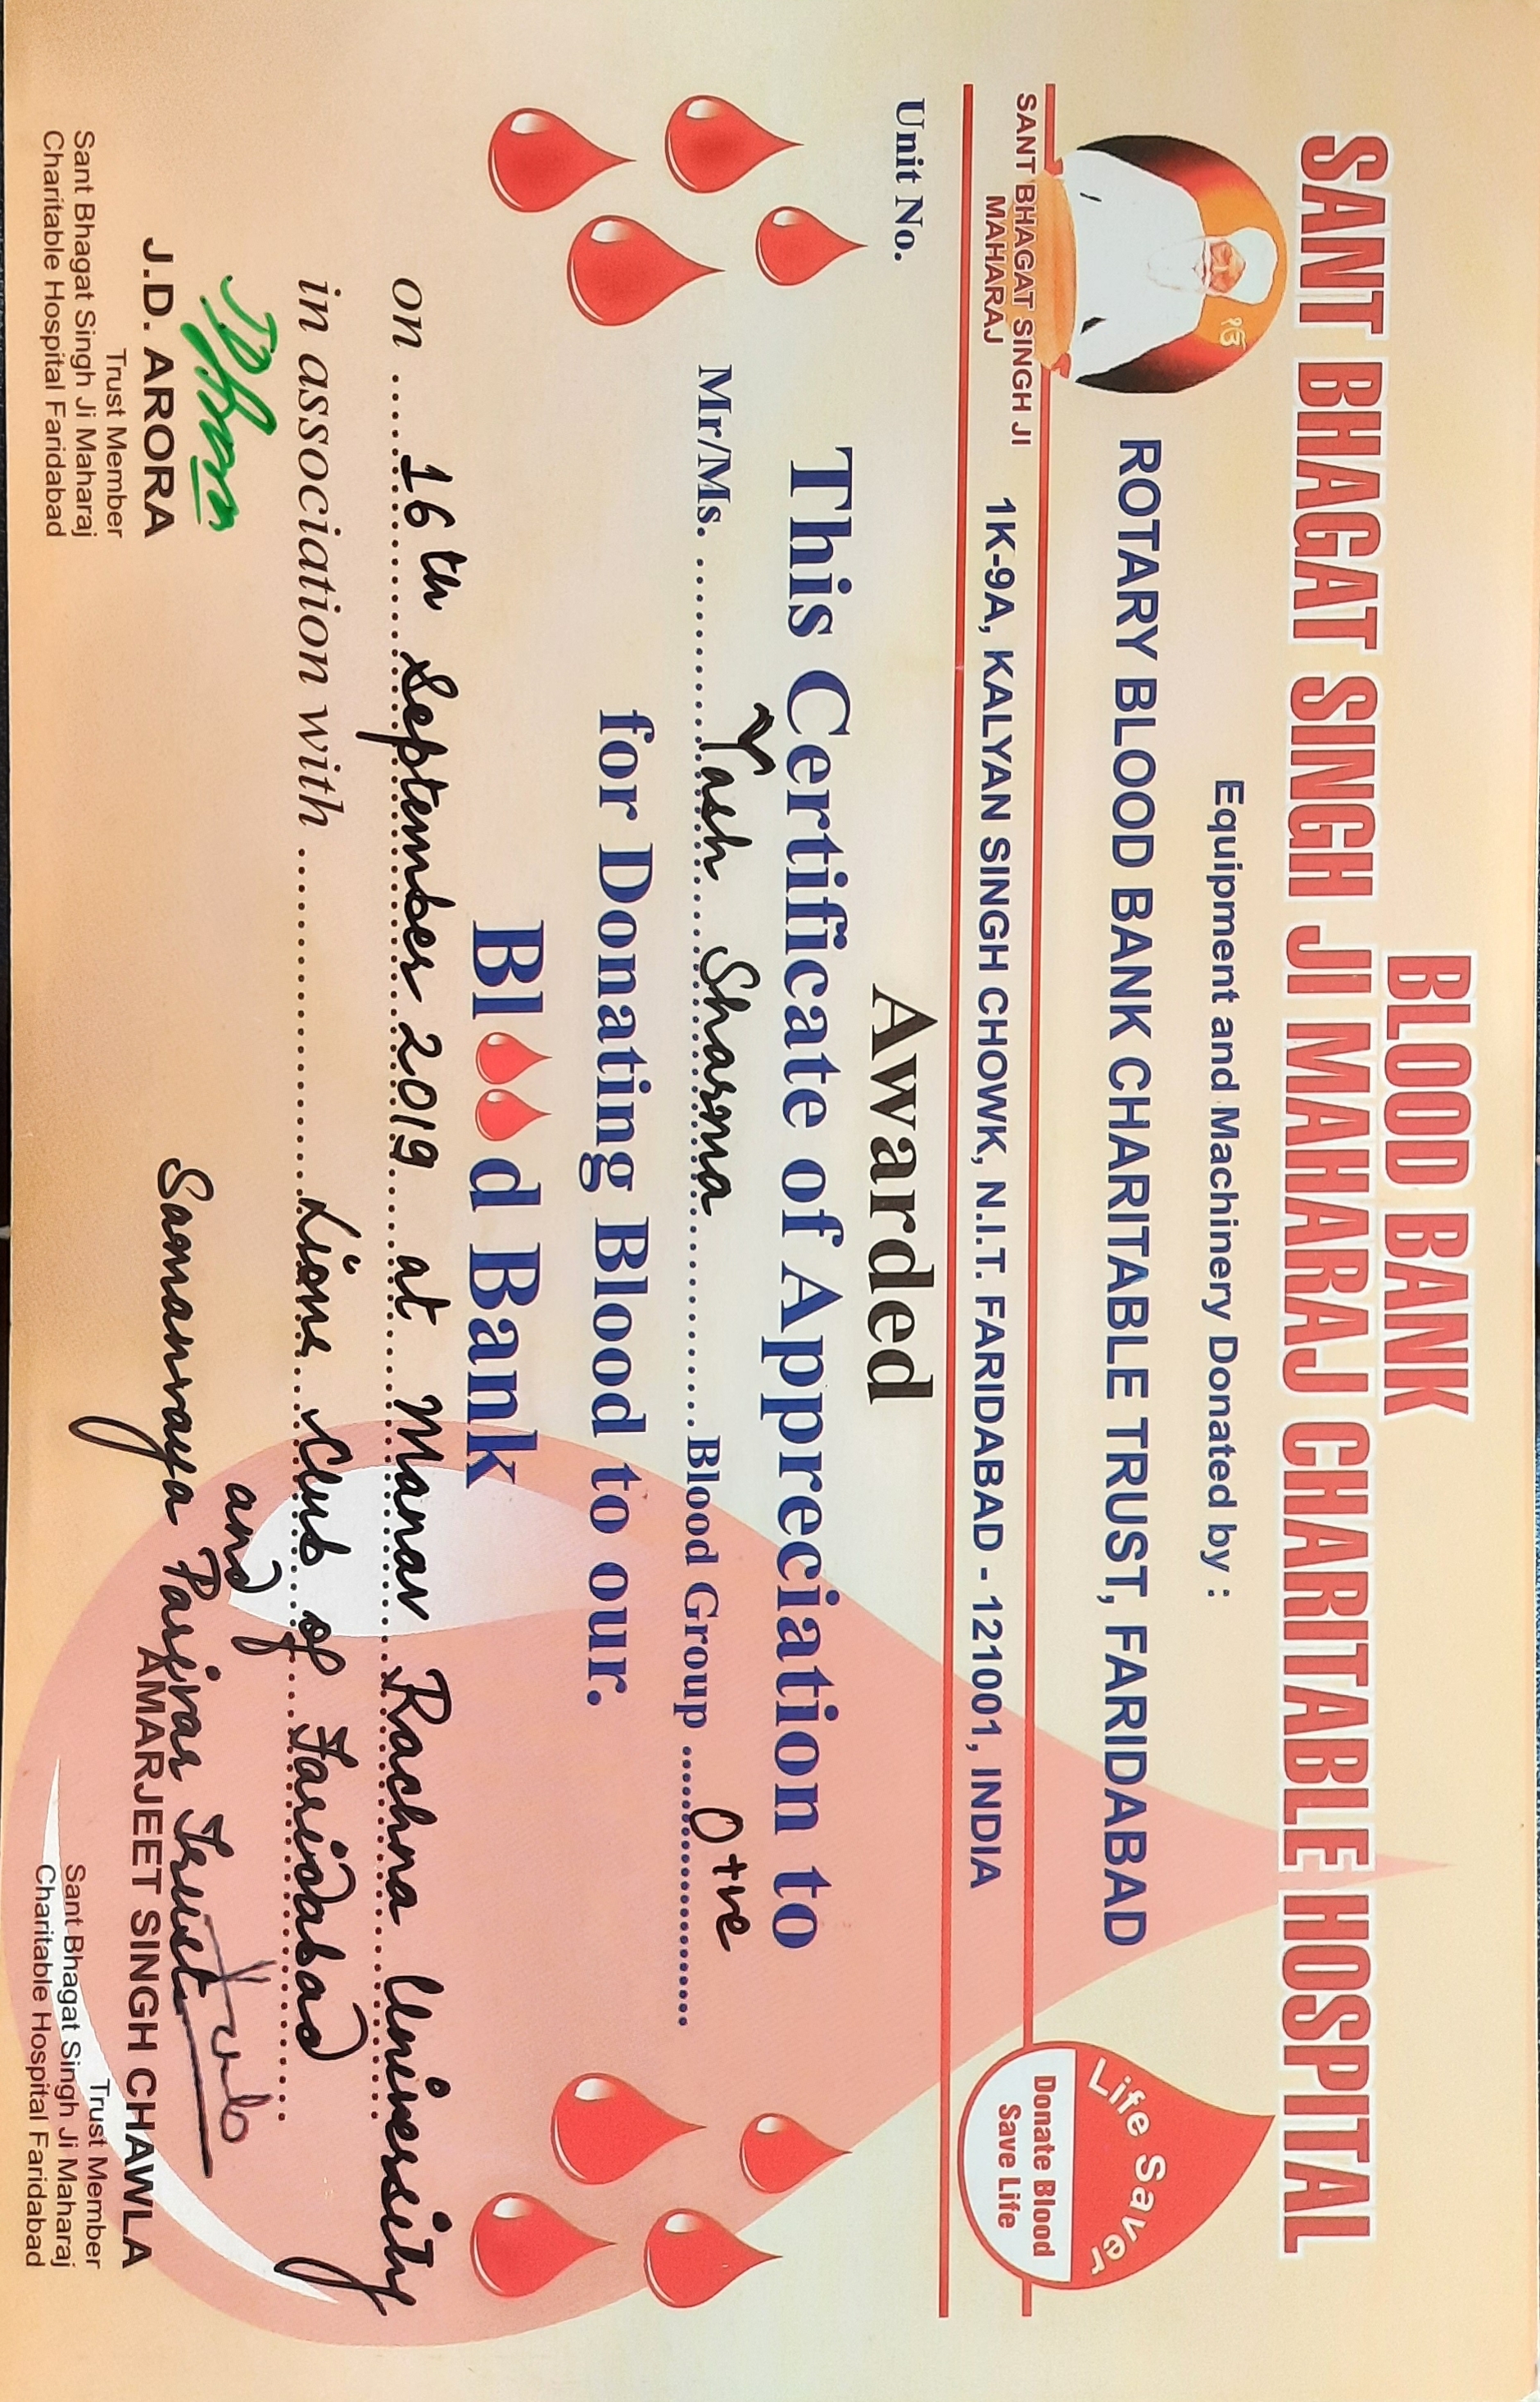 BLOOD BANK
SANT BHAGAT SINGH JI MAHARAJ CHARITABLE HOSPITAL
ੴ
Equipment and Machinery Donated by :
ROTARY BLOOD BANK CHARITABLE TRUST, FARIDABAD
Life Saver
Donate Blood
Save Life
SANT BHAGAT SINGH JI
MAHARAJ
1K-9A, KALYAN SINGH CHOWK, N.I.T. FARIDABAD - 121001, INDIA
Unit No.
Awarded
This Certificate of Appreciation to
Mr/Ms. Yash Sharma Blood Group O +ve
for Donating Blood to our.
Blood Bank
on 16th September 2019 at Manav Rachna University
in association with Lions Club of Faridabad
and
Samanvaya Parivar Trust
JD Arora
J.D. ARORA
Trust Member
Sant Bhagat Singh Ji Maharaj
Charitable Hospital Faridabad
AMARJEET SINGH CHAWLA
Trust Member
Sant Bhagat Singh Ji Maharaj
Charitable Hospital Faridabad